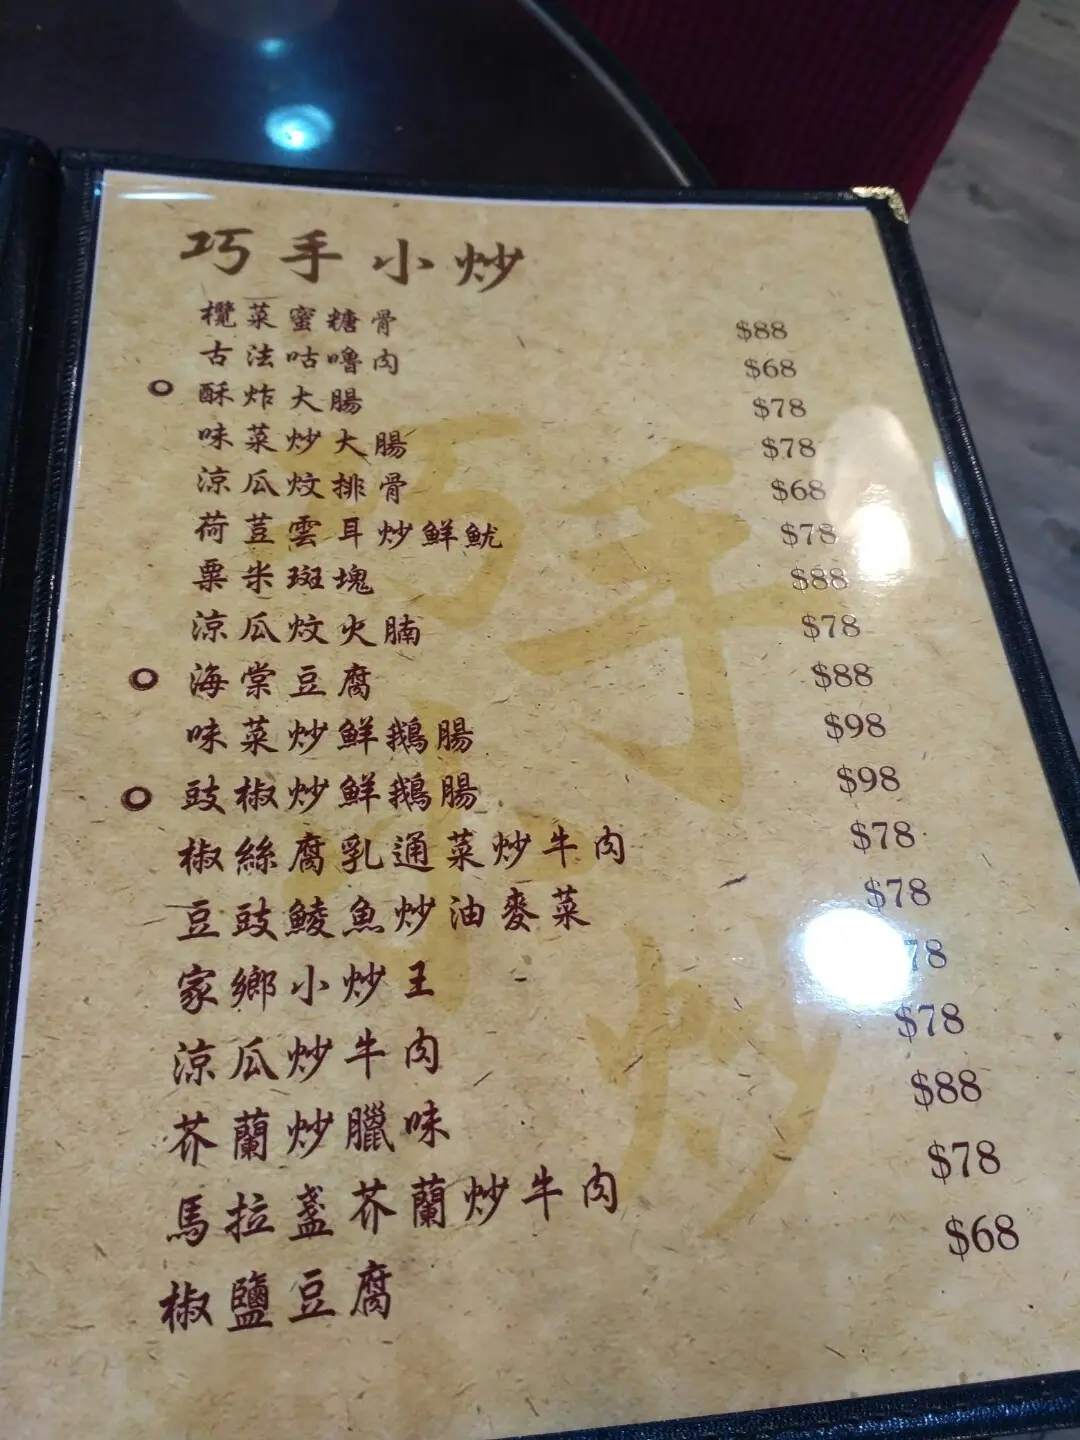 巧手小炒
欖菜蜜糖骨 $88
古法咕嚕肉 $68
酥炸大腸 $78
味菜炒大腸 $78
涼瓜炆排骨 $68
荷荳雲耳炒鮮魷 $78
粟米斑塊 $88
涼瓜炆火腩 $78
海棠豆腐 $88
味菜炒鮮鵝腸 $98
豉椒炒鮮鵝腸 $98
椒絲腐乳通菜炒牛肉 $78
豆豉鯪魚炒油麥菜 $78
家鄉小炒王 78
涼瓜炒牛肉 $78
芥蘭炒臘味 $88
馬拉盞芥蘭炒牛肉 $78
椒鹽豆腐 $68